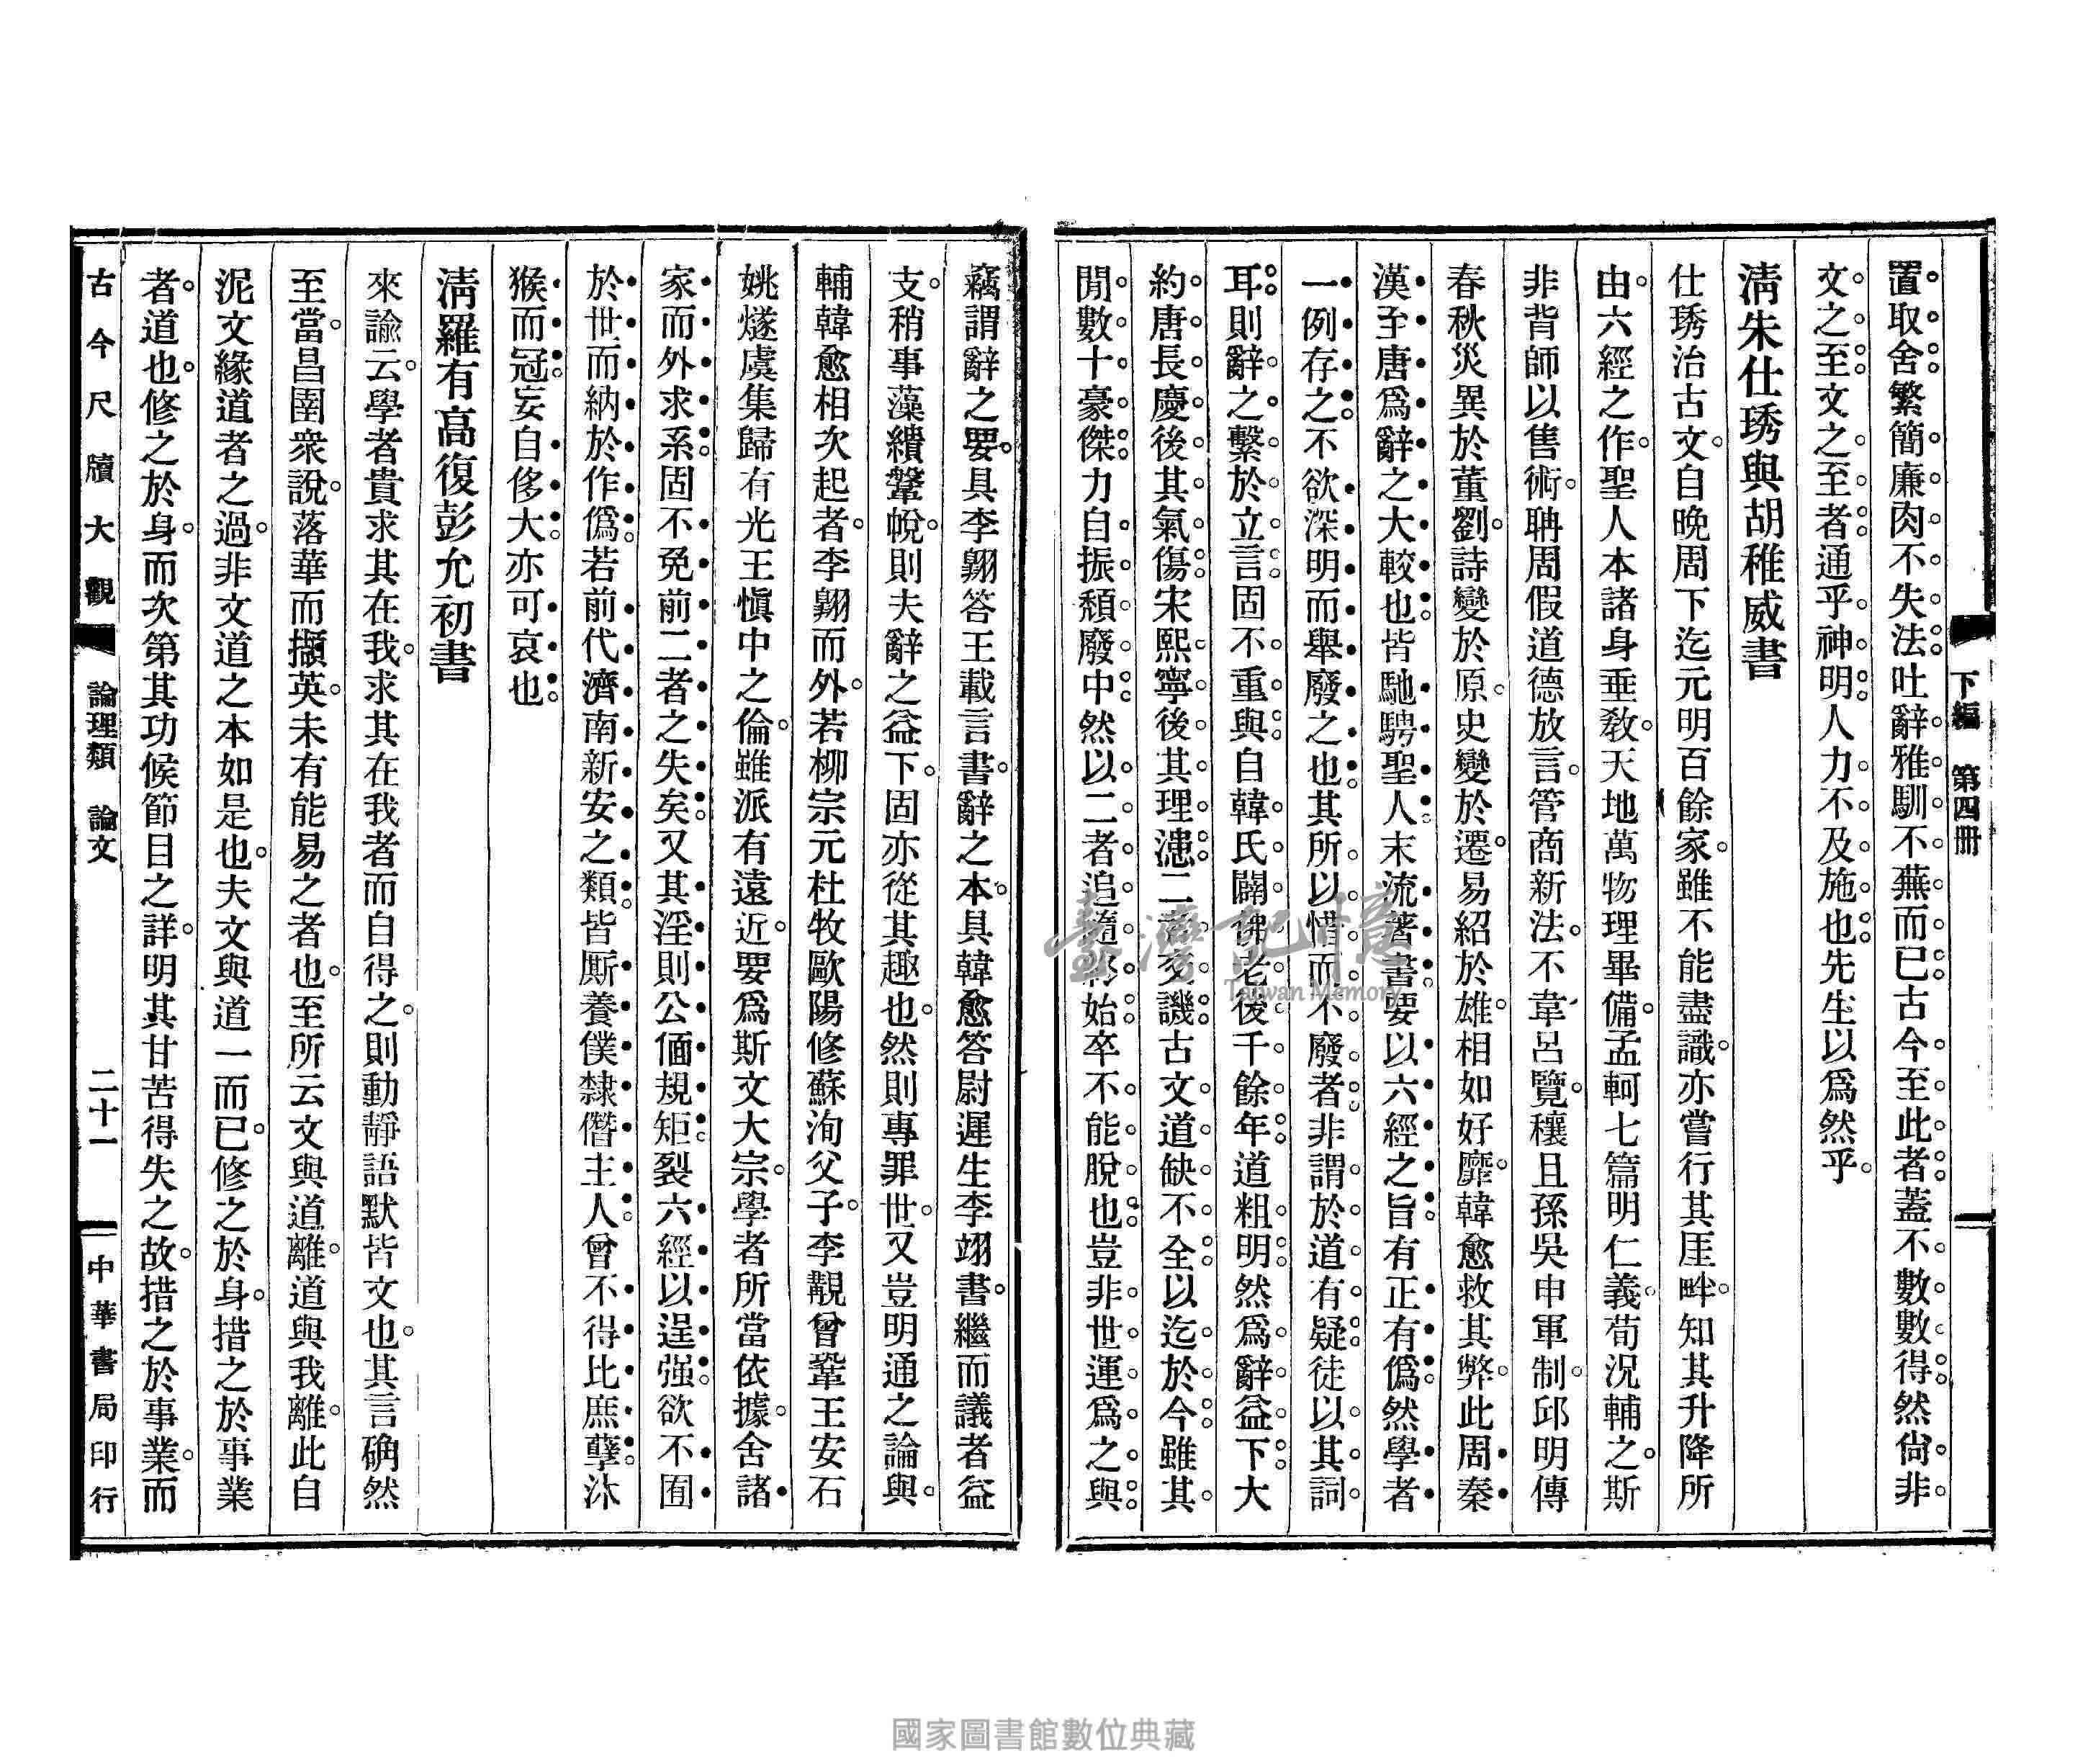 下編　第四冊
置取舍繁簡廉肉不失法吐辭雅馴不蕪而已古今至此者蓋不數數得然尙非
文之至文之至者通乎神明人力不及施也先生以爲然乎
淸朱仕琇與胡稚威書
仕琇治古文自晚周下迄元明百餘家雖不能盡識亦嘗行其厓畔知其升降所
由六經之作聖人本諸身垂敎天地萬物理畢備孟軻七篇明仁義荀況輔之斯
非背師以售術聃周假道德放言管商新法不韋呂覽穰且孫吳申軍制邱明傳
春秋災異於董劉詩變於原史變於遷易紹於雄相如好靡韓愈救其弊此周秦
漢至唐爲辭之大較也皆馳騁聖人末流著書要以六經之旨有正有僞然學者
一例存之不欲深明而舉廢之也其所以惜而不廢者非謂於道有疑徒以其詞
耳則辭之繫於立言固不重與自韓氏闢佛老後千餘年道粗明然爲辭益下大
約唐長慶後其氣傷宋熙寧後其理漶二者交譏古文道缺不全以迄於今雖其
閒數十豪傑力自振頹廢中然以二者追隨終始卒不能脫也豈非世運爲之與
竊謂辭之要具李翺答王載言書辭之本具韓愈答尉遲生李翊書繼而議者益
支稍事藻繢鞶帨則夫辭之益下固亦從其趣也然則專罪世又豈明通之論與
輔韓愈相次起者李翺而外若柳宗元杜牧歐陽修蘇洵父子李覯曾鞏王安石
姚燧虞集歸有光王愼中之倫雖派有遠近要爲斯文大宗學者所當依據舍諸
家而外求系固不免前二者之失矣又其淫則公偭規矩裂六經以逞强欲不囿
於世而納於作僞若前代濟南新安之類皆厮養僕隸僭主人曾不得比庶孽沐
猴而冠妄自侈大亦可哀也
淸羅有高復彭允初書
來諭云學者貴求其在我求其在我者而自得之則動靜語默皆文也其言确然
至當昌圉衆說落華而擷英未有能易之者也至所云文與道離道與我離此自
泥文緣道者之過非文道之本如是也夫文與道一而已修之於身措之於事業
者道也修之於身而次第其功候節目之詳明其甘苦得失之故措之於事業而
古今尺牘大觀
論理類　論文
二十一
中華書局印行
臺灣記憶
Taiwan Memory
國家圖書館數位典藏